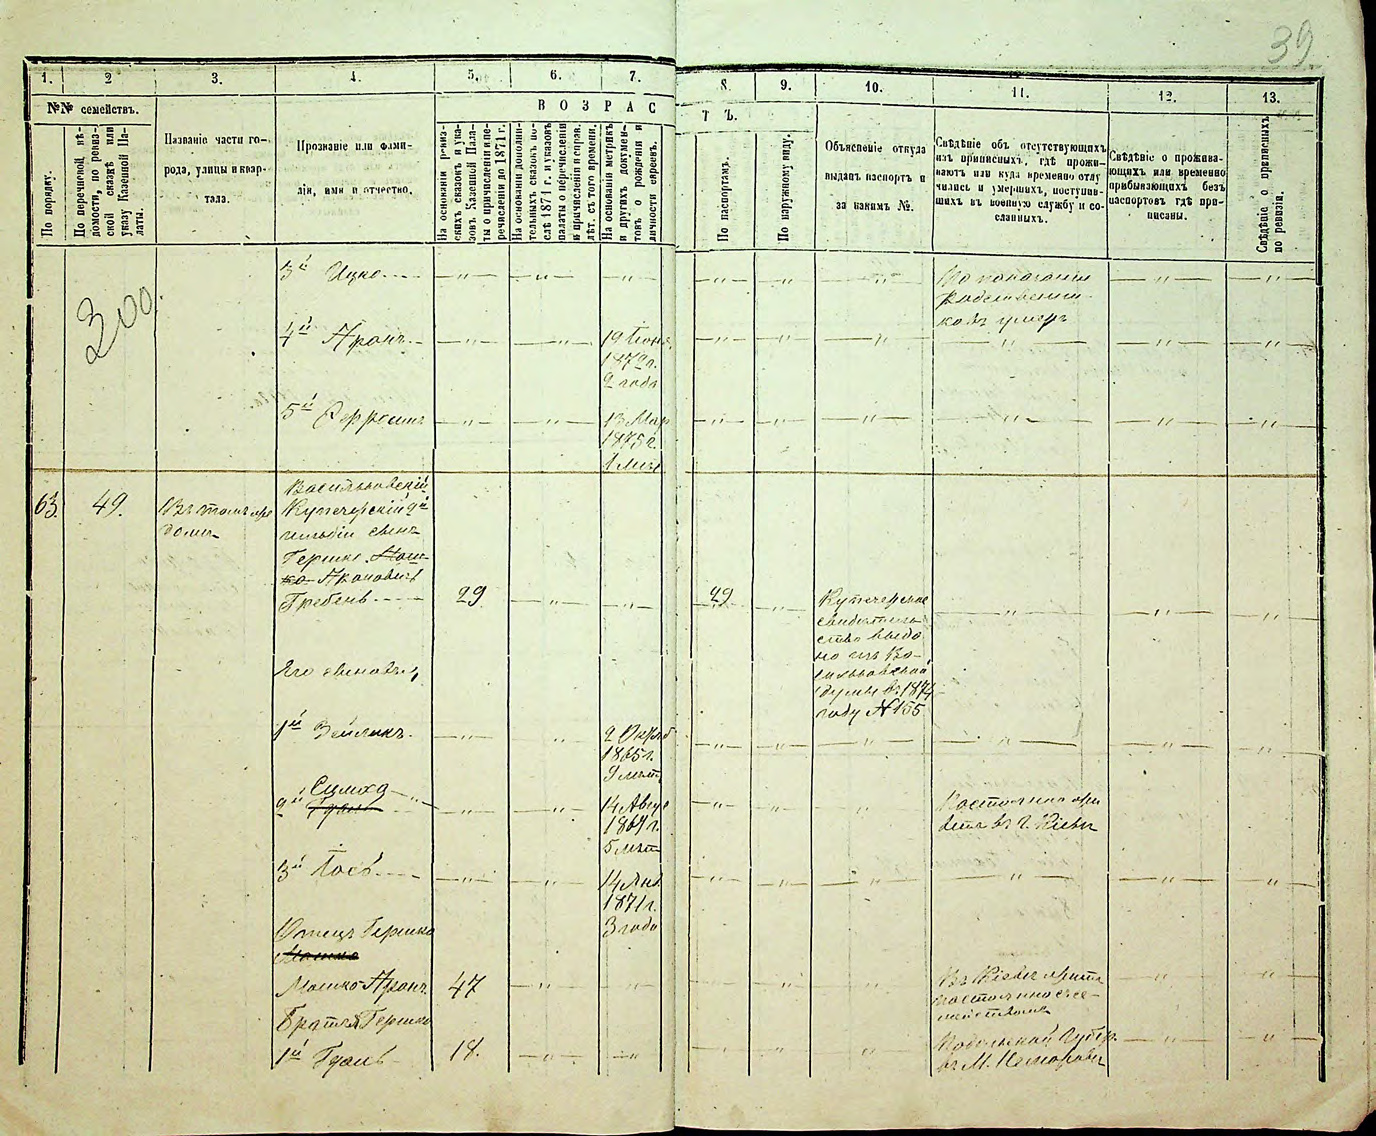 39.
1.
2
3.
4.
5.
6.
7.
8.
9.
10.
11.
12.
13.
№№ семействъ.
По порядку.
По перечневой вѣ-
домости, по ревиз-
ской сказкѣ или
указу Казенной Па-
латы.
Названіе части го-
рода, улицы и квар-
тала.
Прозваніе или фами-
лія, имя и отчество.
ВОЗРАС
ТЪ.
На основаніи ревиз-
скихъ сказокъ и ука-
зовъ Казенной Пала-
ты о причисленіи и пе-
речисленіи до 1871 г.
На основаніи дополни-
тельныхъ сказокъ по-
слѣ 1871 г. и указовъ
палаты о перечисленіи
и причисленіи и справ.
лѣт. съ того времени.
На основаніи метрикъ
и другихъ докумен-
товъ о рожденіи и
личности евреевъ.
По паспортамъ.
По наружному виду.
Объясненіе откуда
выданъ паспортъ и
за какимъ №.
Свѣдѣніе объ отсутствующихъ
изъ приписныхъ, гдѣ прожи-
ваютъ или куда временно отлу
чились и умершихъ, поступив-
шихъ въ военную службу и со-
сланныхъ.
Свѣдѣніе о прожива-
ющихъ или временно
прибывающихъ безъ
паспортовъ гдѣ при-
писаны.
Свѣдѣніе о приписныхъ
по ревизіи.
300
3й Ицко
По показанію
родственни-
ковъ умеръ
4й Аронъ
19 Іюня
1872 г.
2 года
5й
13 Мар
1875 г.
1 мѣс
63.
49.
Въ томъ же
домѣ
Васильковскій
Купеческій 2й
гильдіи сынъ
Гершко Мош-
ко Ароновичъ
Гребень
29
29
Купеческое
свидѣтель
ство выда
но изъ Ва-
сильковской
думы въ 1874
году № 155
Его сыновья,
1й Зейликъ
2 Октяб
1865 г.
9 лѣтъ
Сумха
2й Гдаль
14 Авгус
1869 г.
5 лѣтъ
Постоянно жи
ветъ въ г. Кіевѣ
3й Іосъ
14 Янв.
1871 г.
3 года
Отецъ Гершко
Мошко
Мошко Аронъ
47
Въ Кіевѣ житъ
постоянно съ се-
мействомъ
Братья Гершко
1й Гдаль
18.
Подольской Губер.
въ М. Немировъ